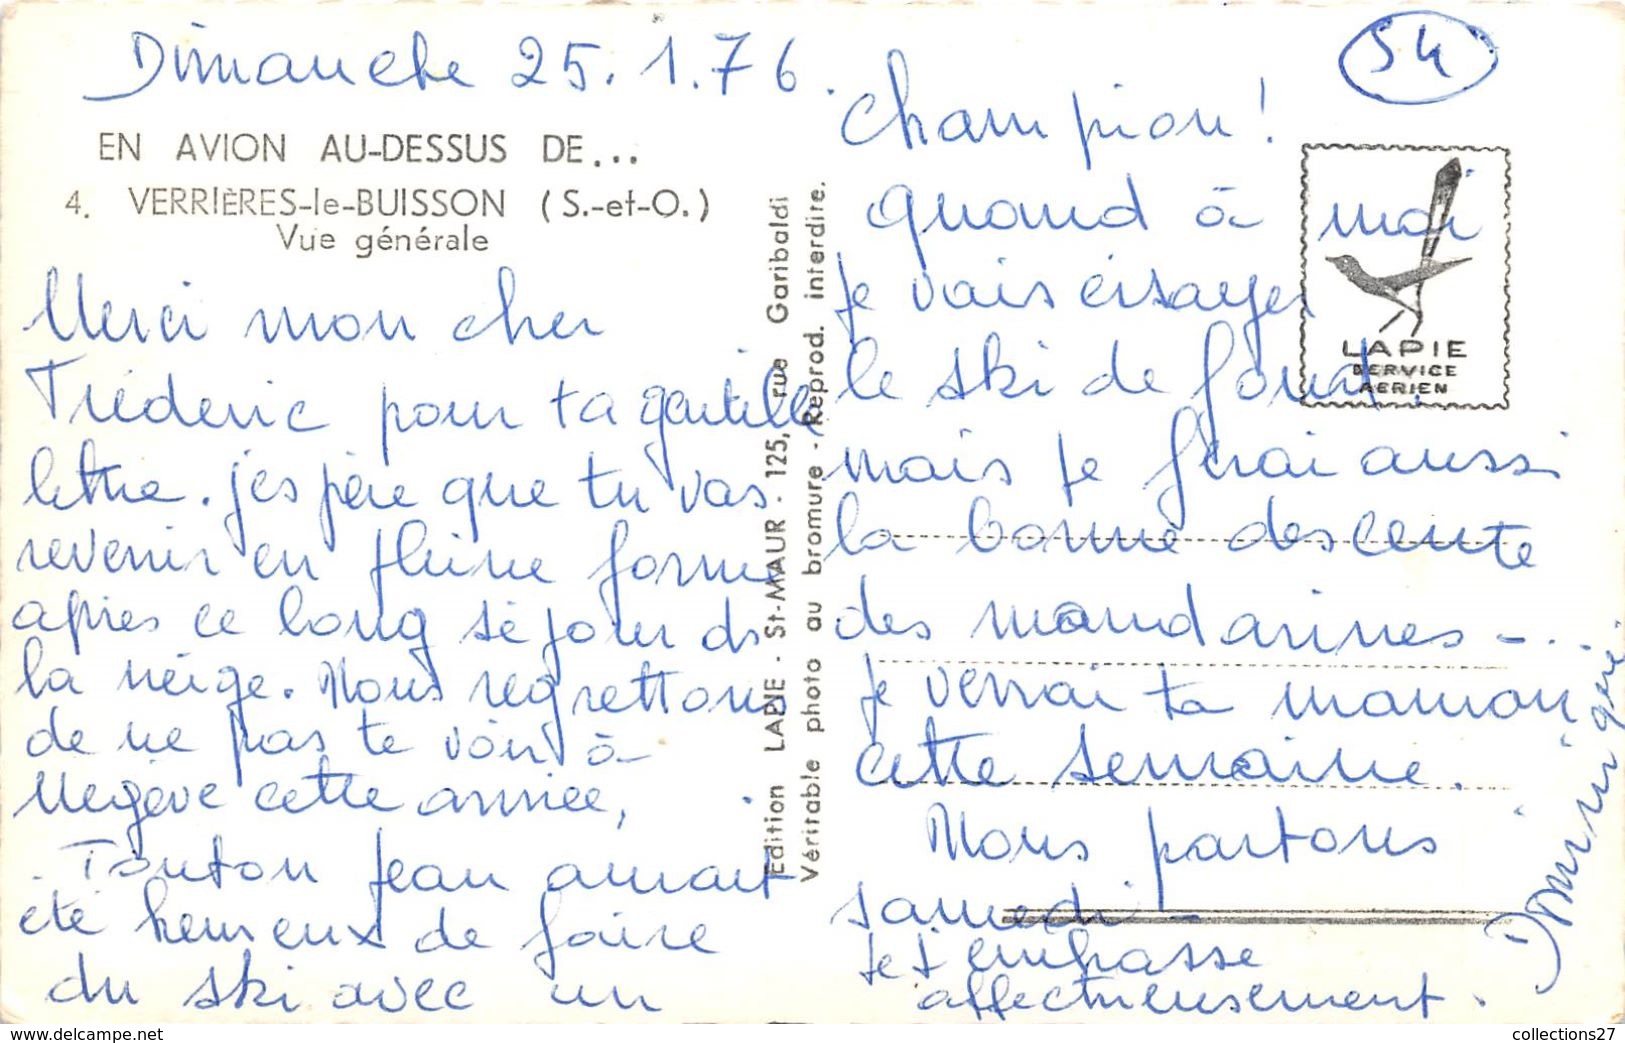 Dimanche 25.1.76.
EN AVION AU-DESSUS DE...
4. VERRIÈRES-le-BUISSON (S.-et-O.)
Vue générale
Merci mon cher
Fréderic pour ta gentille
lettre. j'espère que tu vas
revenir en pleine forme
après ce long séjour ds
la neige. Nous regrettons
de ne pas te voir à
Megève cette année,
Tonton Jean aurait
été heureux de faire
du ski avec un
Edition LAPIE - St-MAUR - 125, rue Garibaldi
Véritable photo au bromure - Reprod. interdire.
54
champion!
quand à moi
je vais éssayer
le ski de fond.
mais je ferai aussi
la bonne descente
des mandarines -..
je verrai ta maman
cette semaine.
Nous partons
samedi -
je t'embrasse
affectueusement.
Dominique
LAPIE
SERVICE
AERIEN
collections27